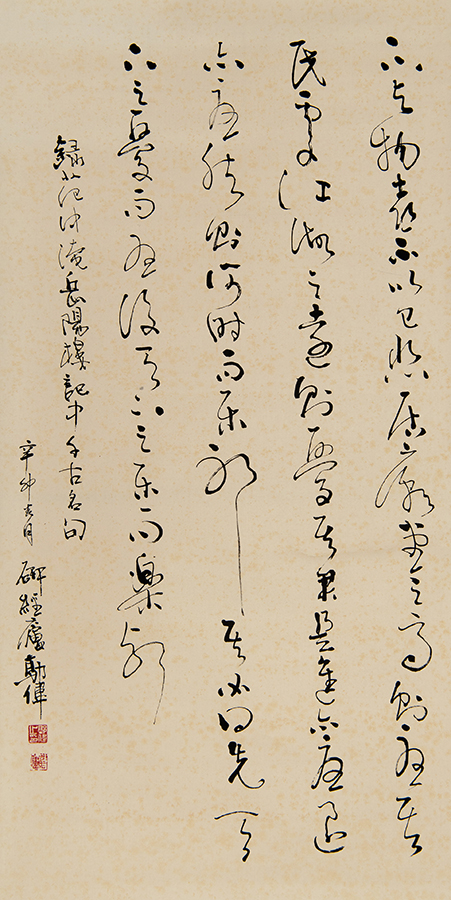 不以物喜不以己悲居廟堂之高則憂其
民處江湖之遠則憂其君是進亦憂退
亦憂然則何時而樂耶其必曰先天
下之憂而憂後天下之樂而樂歟
錄范仲淹岳陽樓記中千古名句
辛卯月 研經廬勛偉